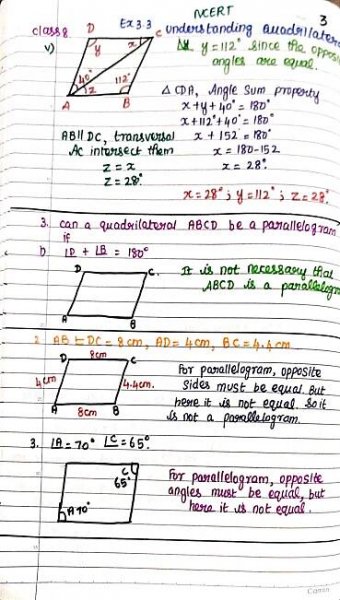 NCERT
3
class 8 Ex 3.3 understanding quadrilater
v)
D
C
y
x
40°
z
112°
A
B
y = 112° since the opposi
angles are equal.
△ CDA, Angle Sum property
x+y+40° = 180°
x+112°+40° = 180°
x + 152° = 180°
x = 180-152
x = 28°.
AB || DC, transversal
AC intersect them
z = x
z = 28°.
x = 28° ; y = 112° ; z = 28°.
3. can a quadrilateral ABCD be a parallelogram
if
∠D + ∠B = 180°
D
C
A
B
It is not necessary that
ABCD is a parallelogra
2. AB = DC = 8 cm, AD = 4 cm, BC = 4.4 cm
D
8cm
C
4cm
4.4cm.
A
8cm
B
For parallelogram, opposite
sides must be equal. But
here it is not equal. So it
is not a parallelogram.
3. ∠A = 70° ∠C = 65°.
C
65°
A 70°
For parallelogram, opposite
angles must be equal, but
here it is not equal.